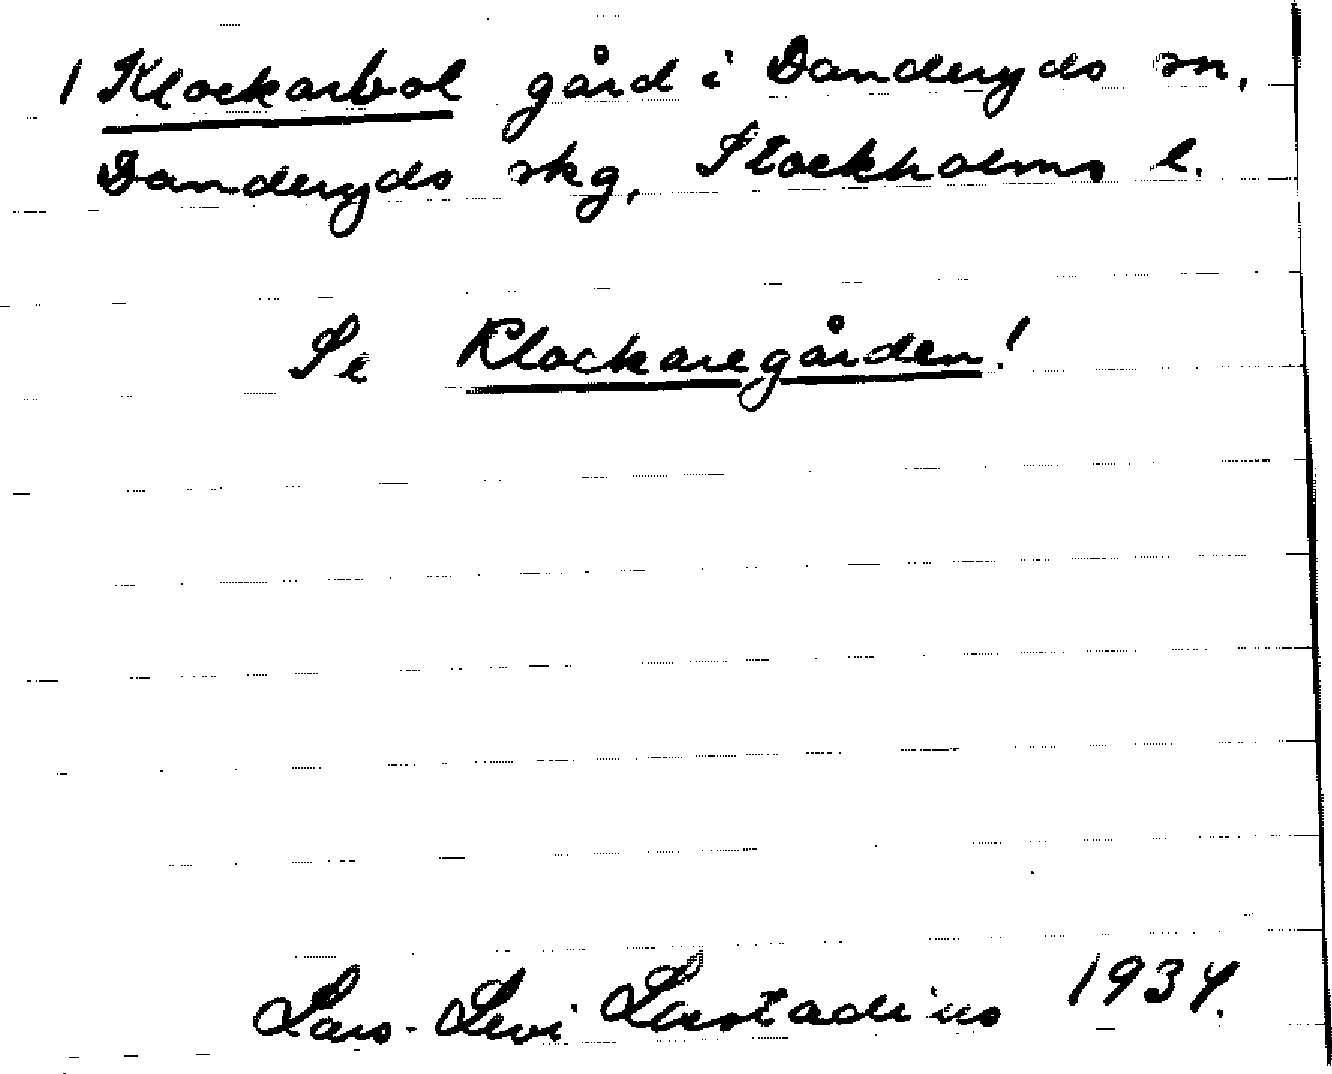 1 Klockarbol gård i Danderyds sn,
Danderyds skg, Stockholms l.
Se Klockaregården!
Lars-Levi Læstadius 1934.